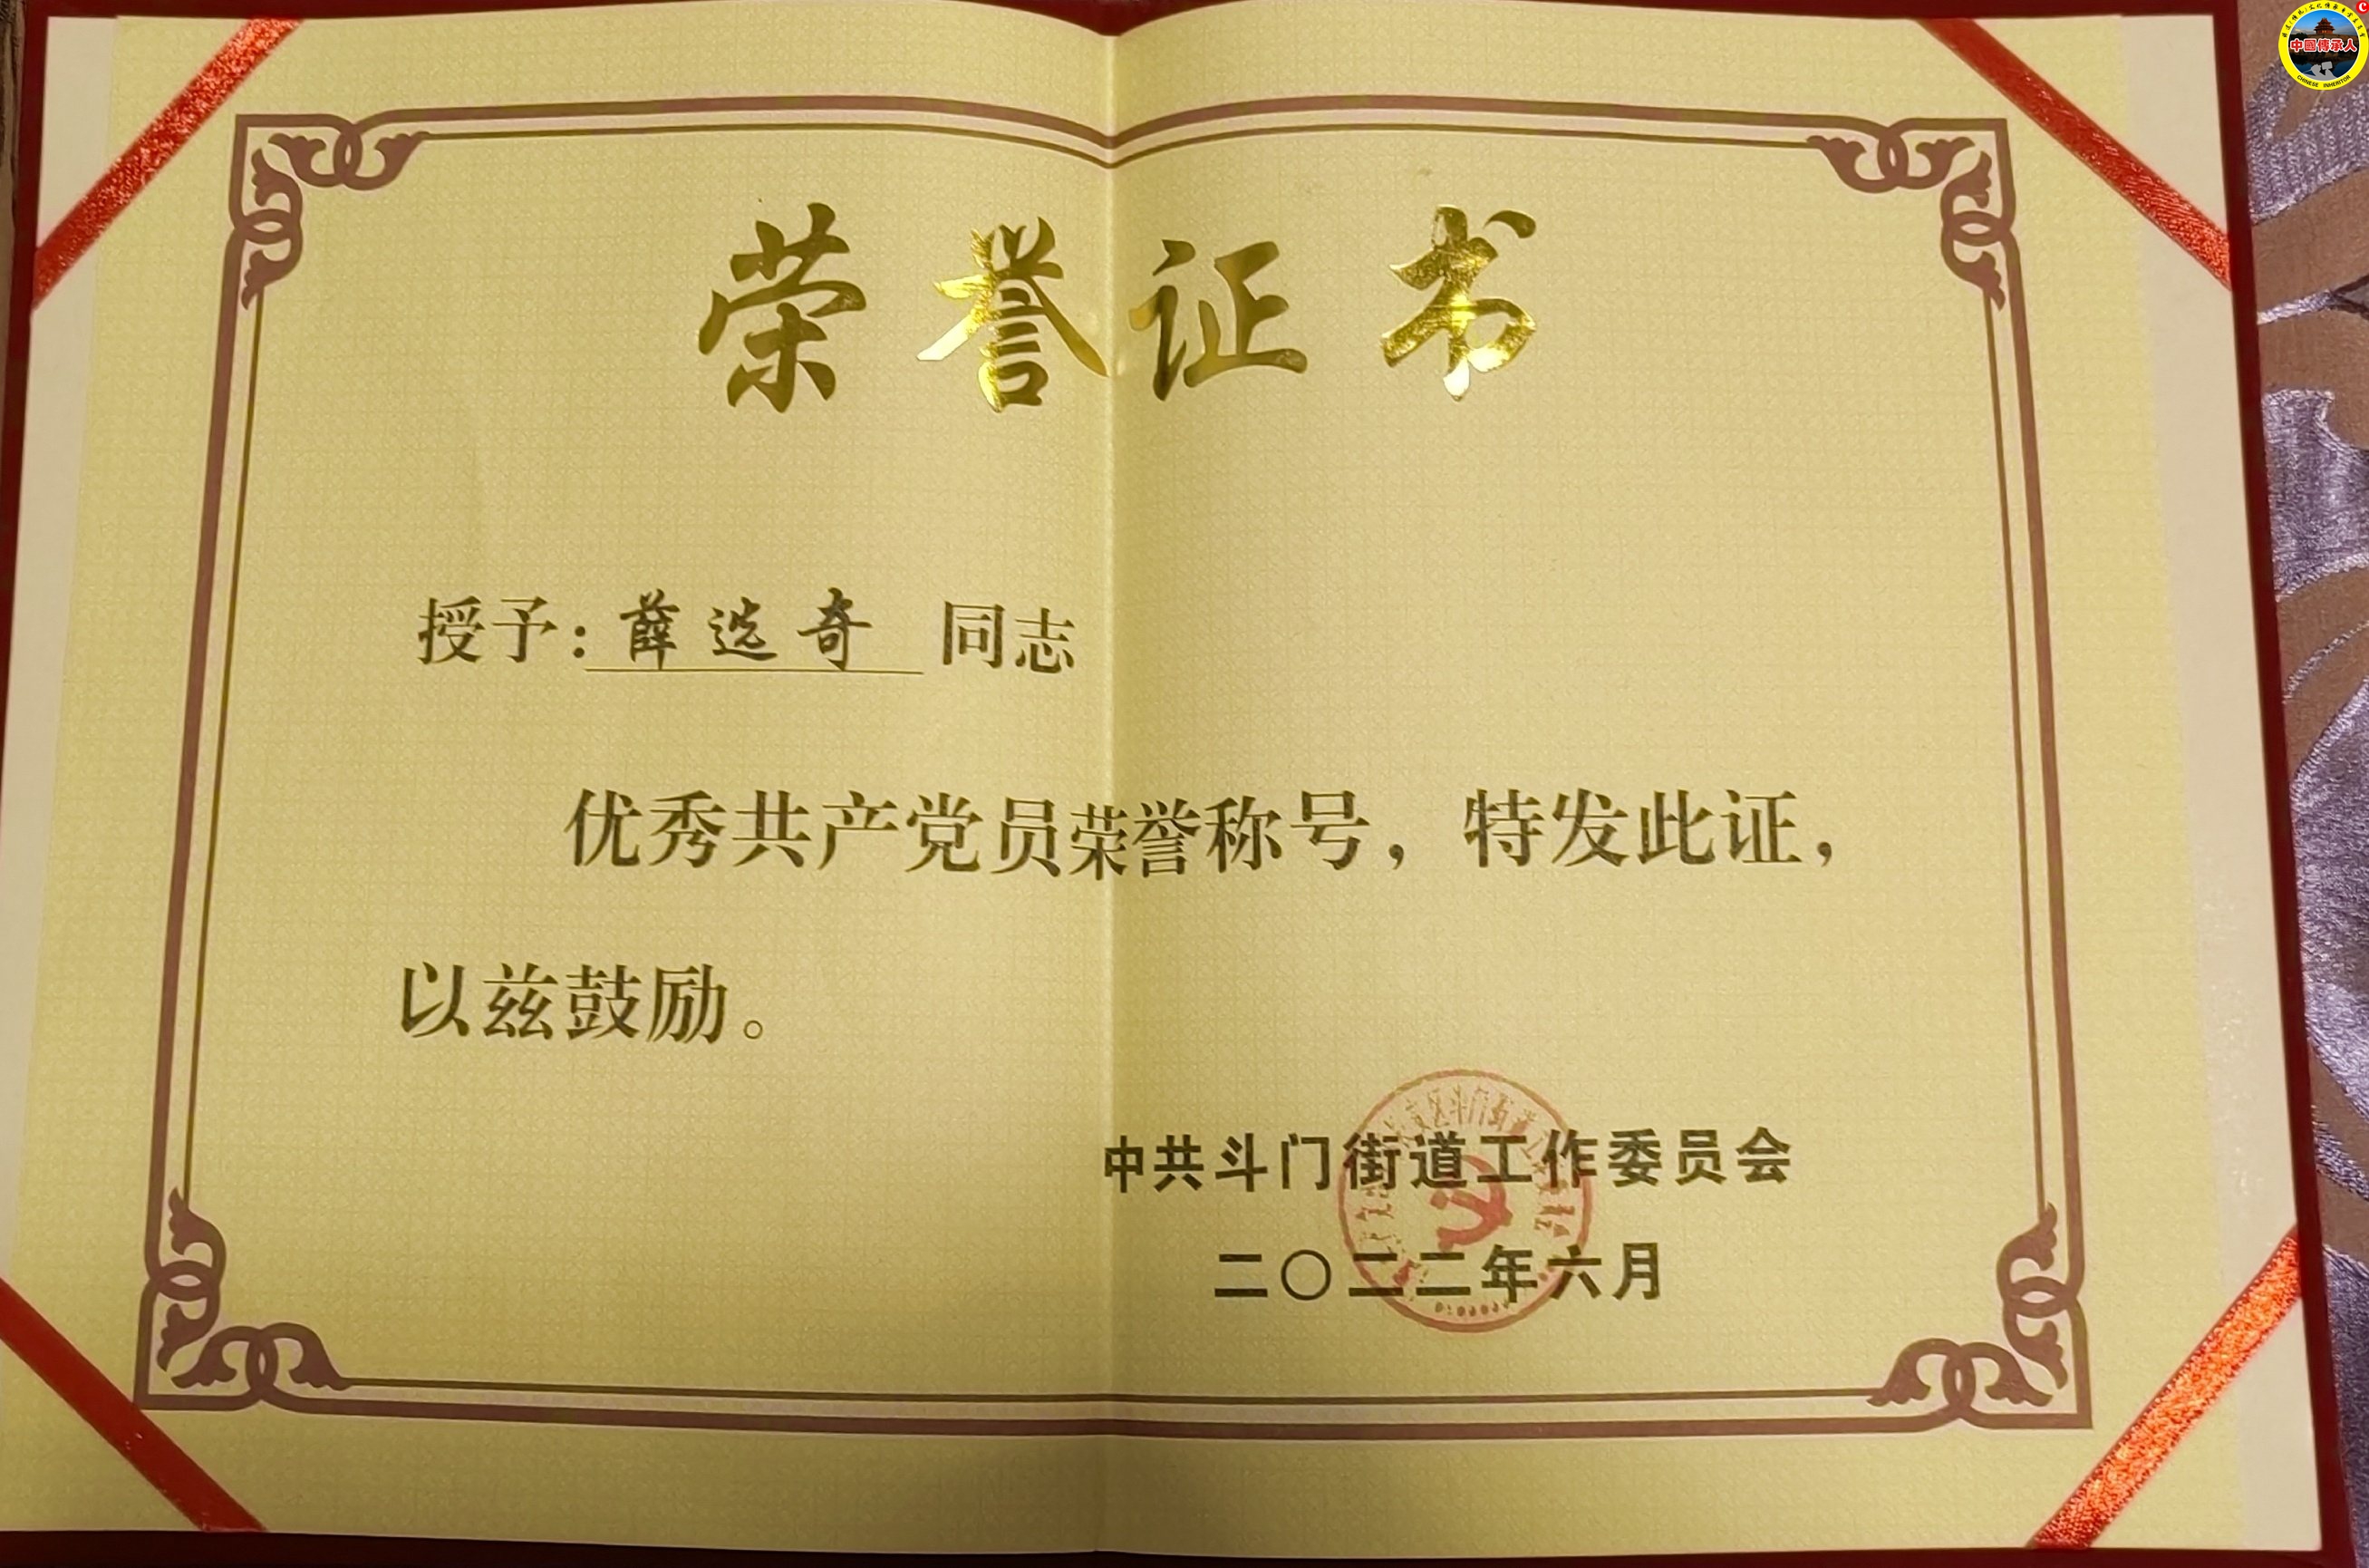 荣誉证书
授予：薛选奇 同志
优秀共产党员荣誉称号，特发此证，
以兹鼓励。
中共斗门街道工作委员会
二〇二二年六月
中國傳承人
CHINESE INHERITOR